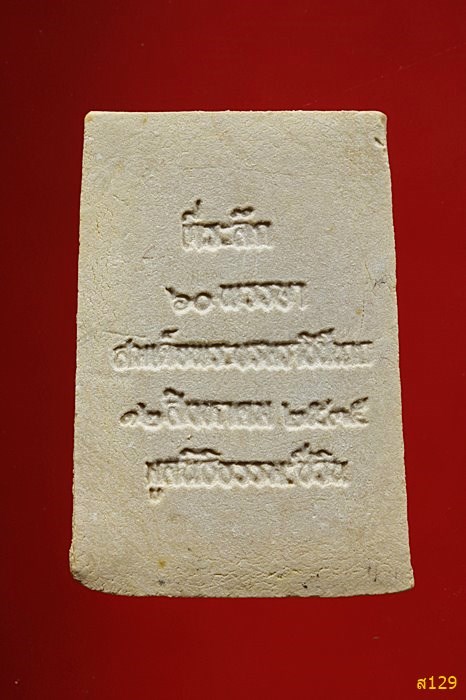 ที่ระลึก
๖๐ พรรษา
สมเด็จพระบรมราชินีนาถ
๑๒ สิงหาคม ๒๕๓๕
มูลนิธิธรรมชีวิน
ส129